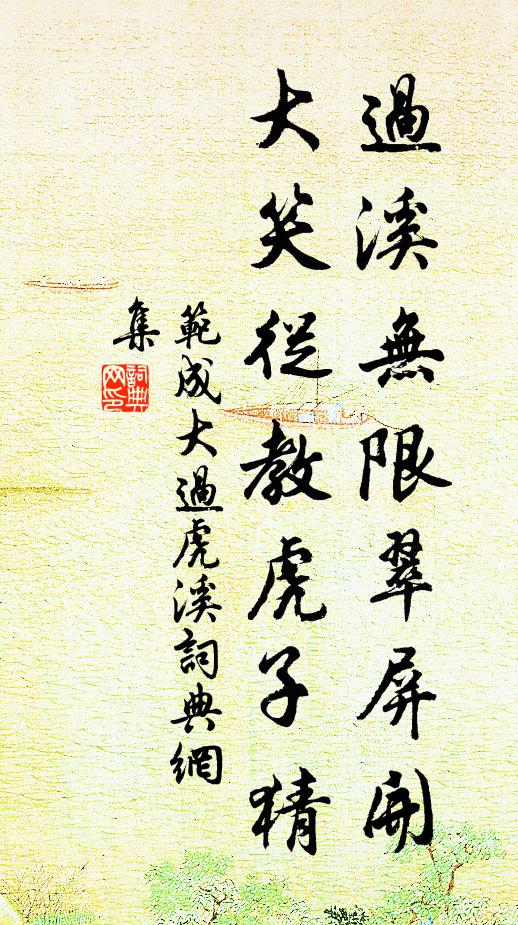 過溪無限翠屏開
大笑從教虎子猜
範成大過虎溪詞典網
集
詞典
网印